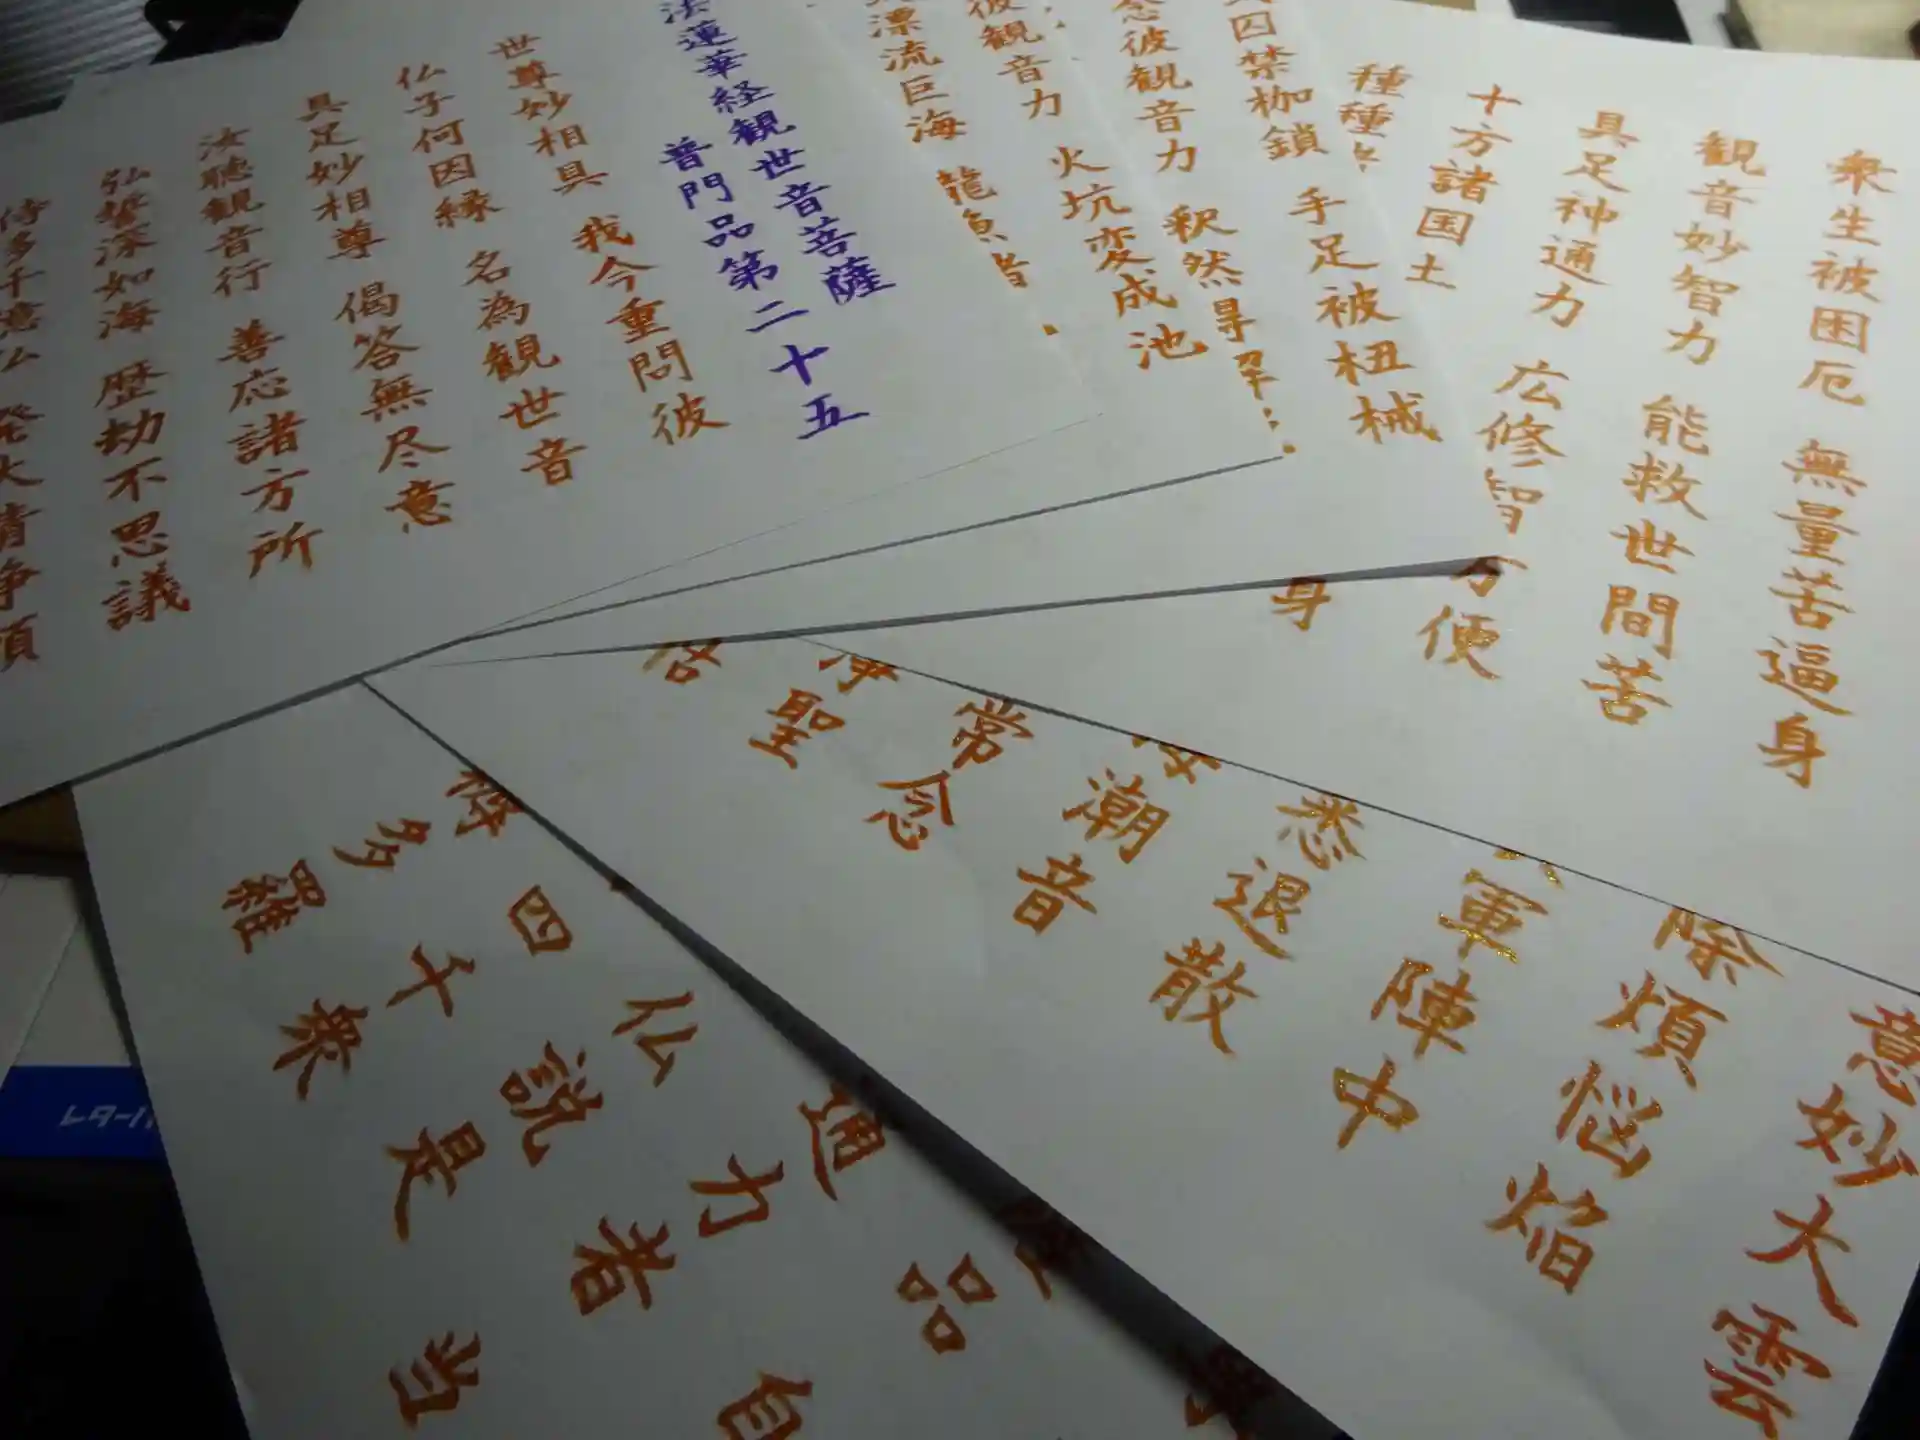 法蓮華経観世音菩薩
普門品第二十五
世尊妙相具 我今重問彼
仏子何因縁 名為観世音
具足妙相尊 偈答無尽意
汝聴観音行 善応諸方所
弘誓深如海 歴劫不思議
侍多千億仏 発大清浄願
漂流巨海 龍魚
彼観音力 火坑変成池
念彼観音力 釈然得解
囚禁枷鎖 手足被杻械
衆生被困厄 無量苦逼身
観音妙智力 能救世間苦
具足神通力 広修智方便
十方諸国土
身
種種
意妙大雲
除煩悩焰
軍陣中
悉退散
潮音
常念
浄聖
品自
通力者
仏説是
四千衆
多羅
当
レター